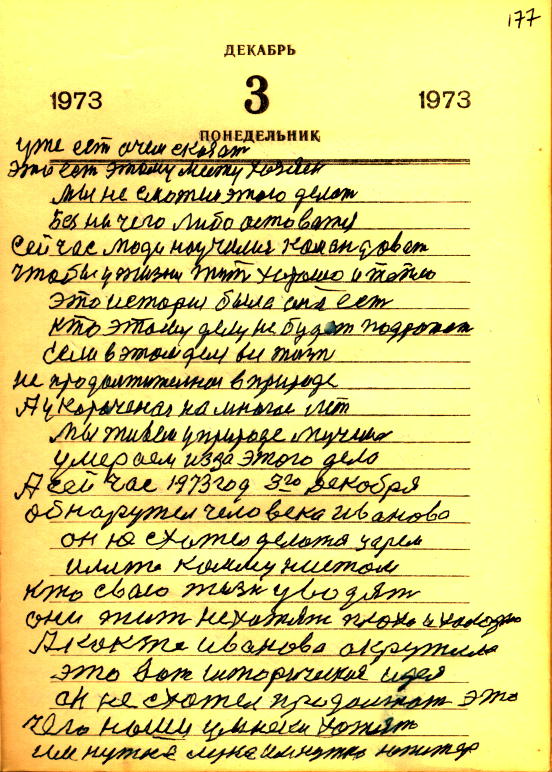 177
ДЕКАБРЬ
1973 3 1973
ПОНЕДЕЛЬНИК
уже ест очем сказат
это ест этому месту хозяен
мы не схотим этого делот
Без ни чего либо остоватя
Сей час люди научилис командоват
чтобы у жизни жит хорошо и тепло
это истори была она ест
кто этому делу не будет подрожат
сели в этом деле ви жизн
не продолжителная в природе
А укороченая на многое лет
мы живем у природе мучимся
умераем изза этого дело
А сей час 1973 год 3го декабря
обнаружел человека иванова
он не схотел делатя царем
илите коммунистом
кто свою жизн уводят
они жит нехотят плохо и холодно
А какже иванова окружила
это вот историческая идея
он не схотел продолжат это
чего наши умнеки хотят
им нужна луна им нужно юпитер